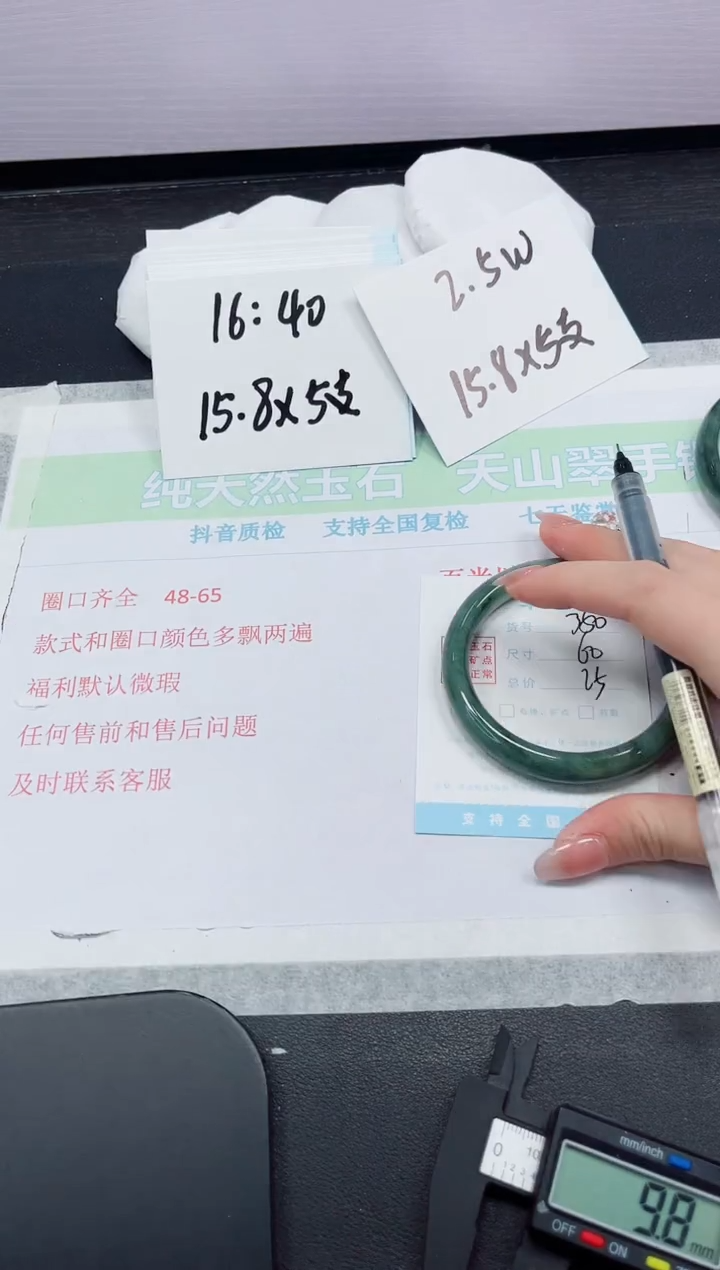 16:40
15.8x5支
2.5W
15.8x5支
纯天然玉石 天山翠手镯
抖音质检 支持全国复检 七天鉴赏
圈口齐全 48-65
款式和圈口颜色多飘两遍
福利默认微瑕
任何售前和售后问题
及时联系客服
玉石
矿点
正常
货号 350
尺寸 60
总价 25
支持全国
0 10
mm/inch
9.8 mm
OFF ON